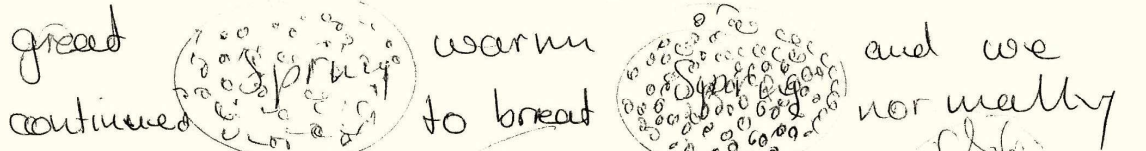 great Spring warm Spring and we
continued to breat normally